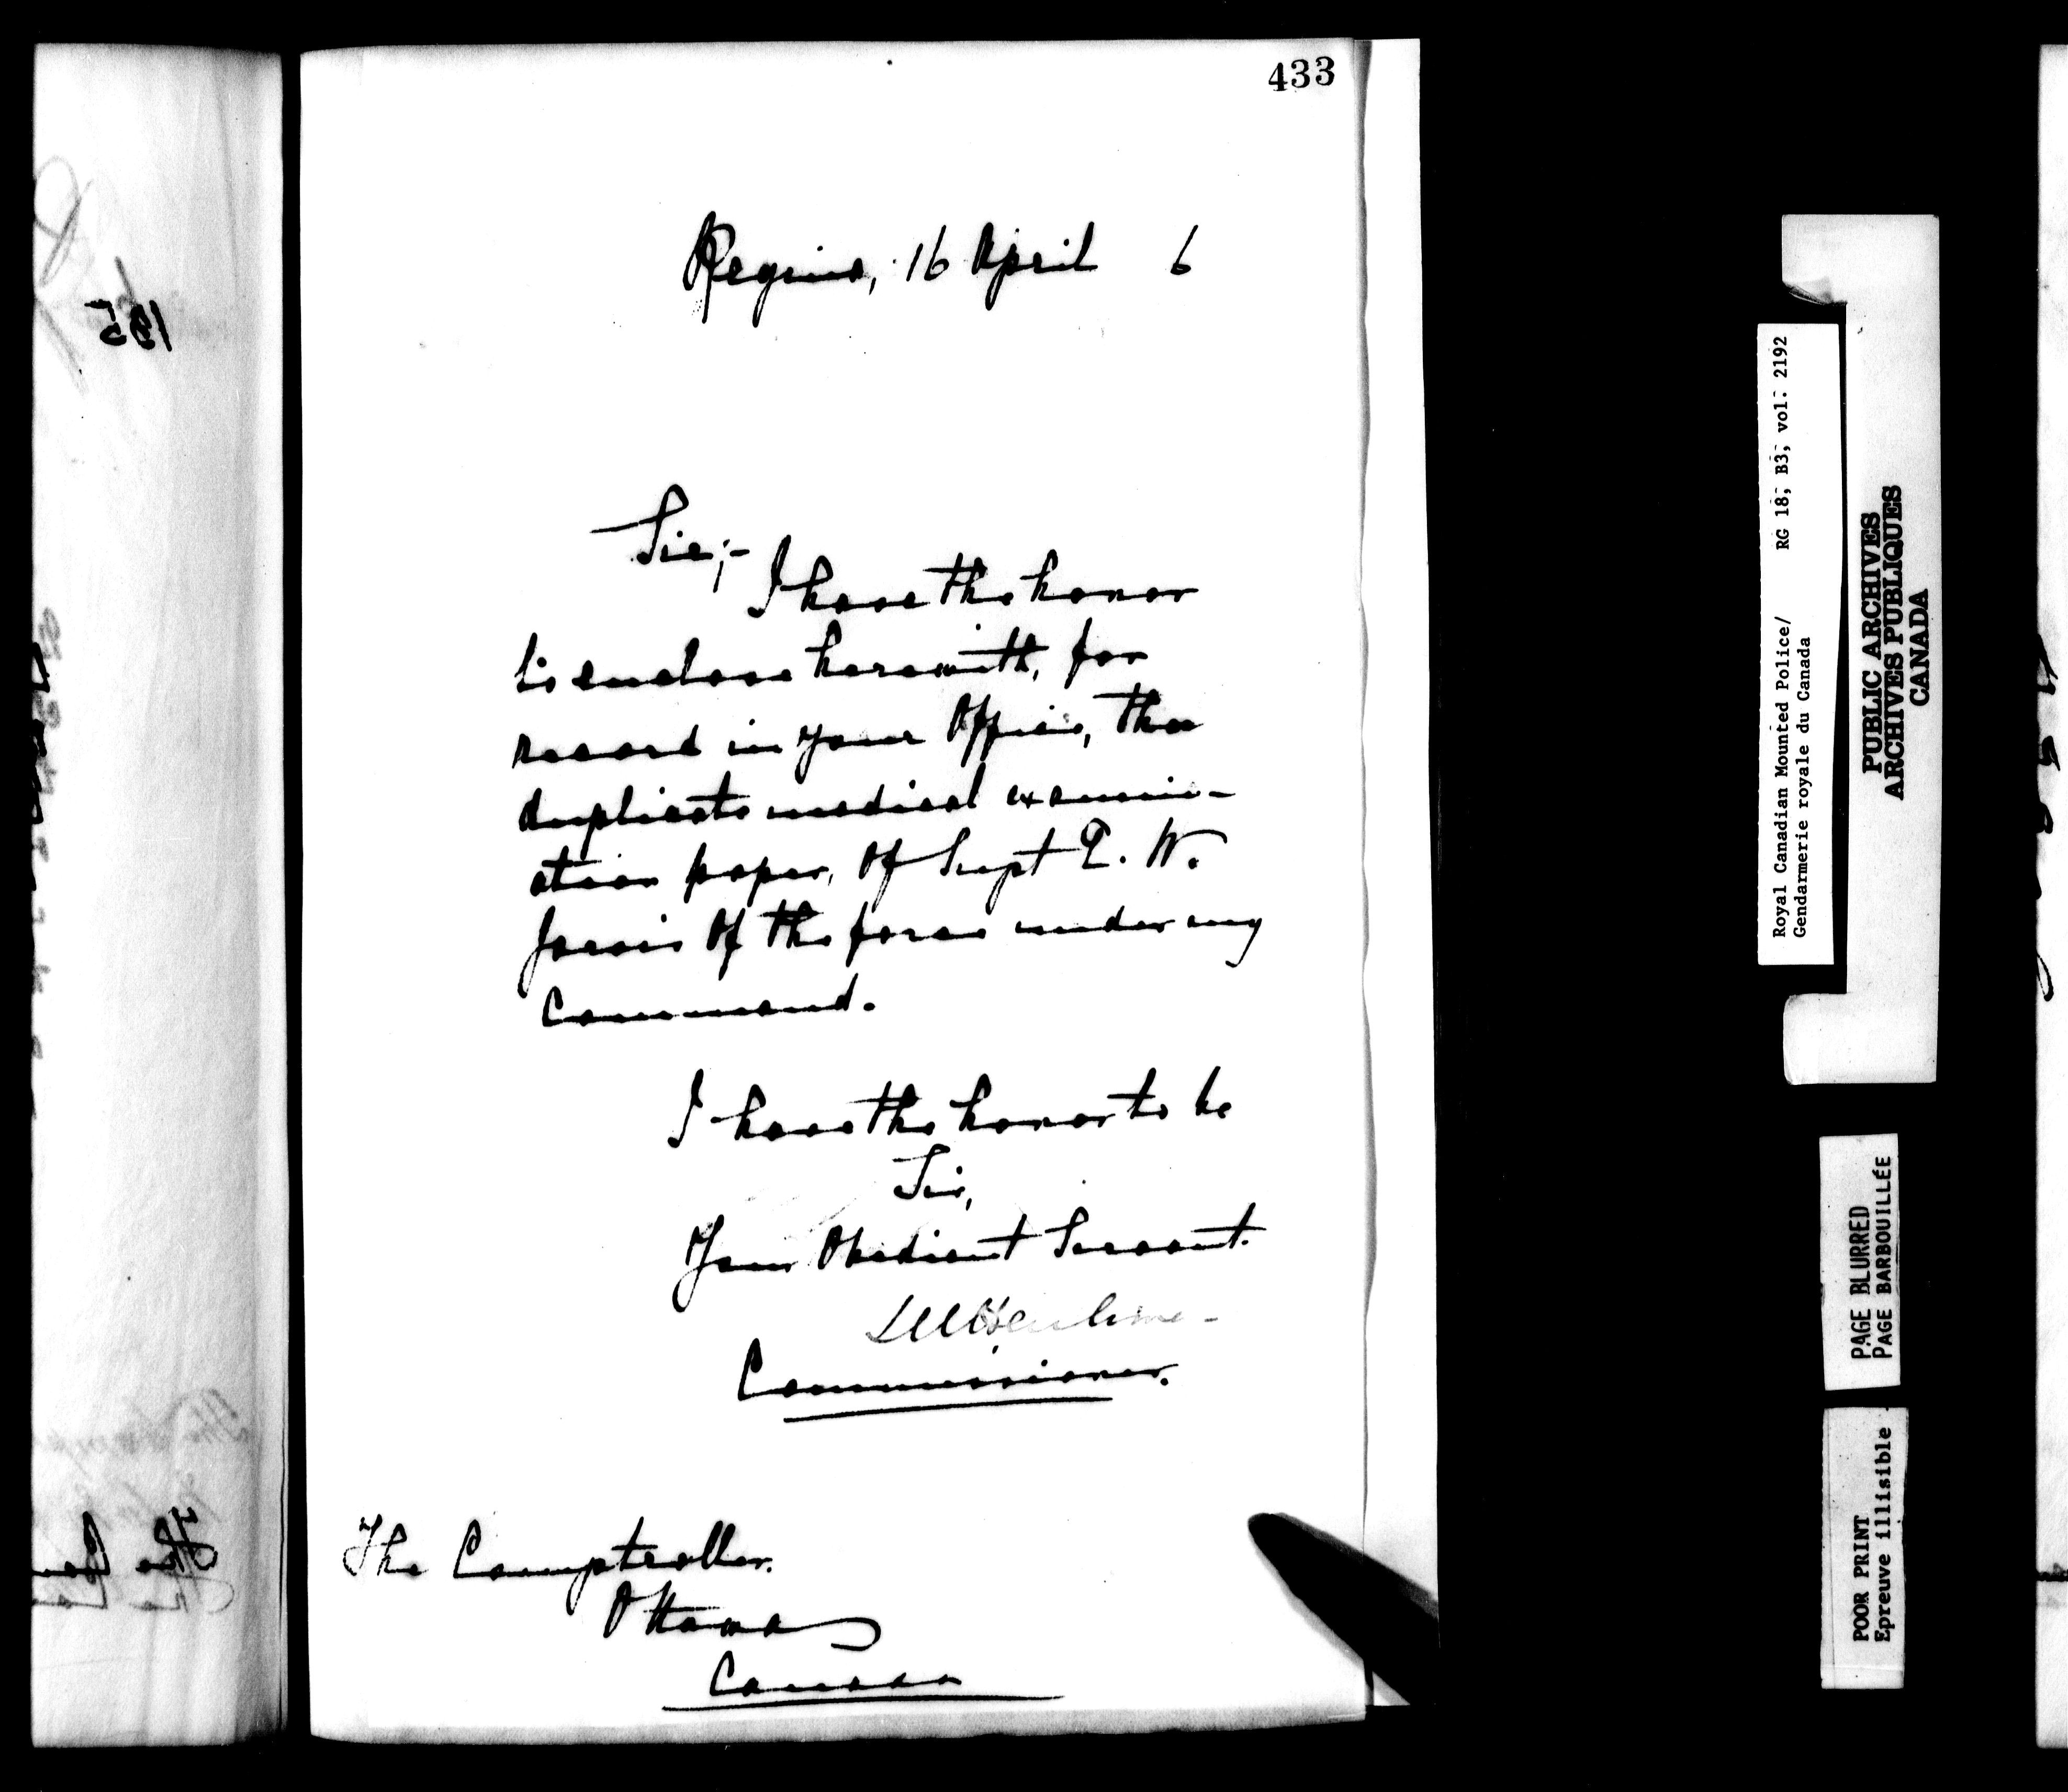 433
Regina, 16 April 6
Sir;-
I have the honor
to enclose herewith, for
record in your Office, the
duplicate medical examin-
ation paper, of Supt E. W.
Jarvis of the force under my
Command.
I have the honor to be
Sir,
Your Obedient Servant.
Commissioner.
The Comptroller.
Ottawa
Canada
195
Royal Canadian Mounted Police/ RG 18, B3, vol. 2192
Gendarmerie royale du Canada
PUBLIC ARCHIVES
ARCHIVES PUBLIQUES
CANADA
PAGE BLURRED
PAGE BARBOUILLÉE
POOR PRINT
Epreuve illisible